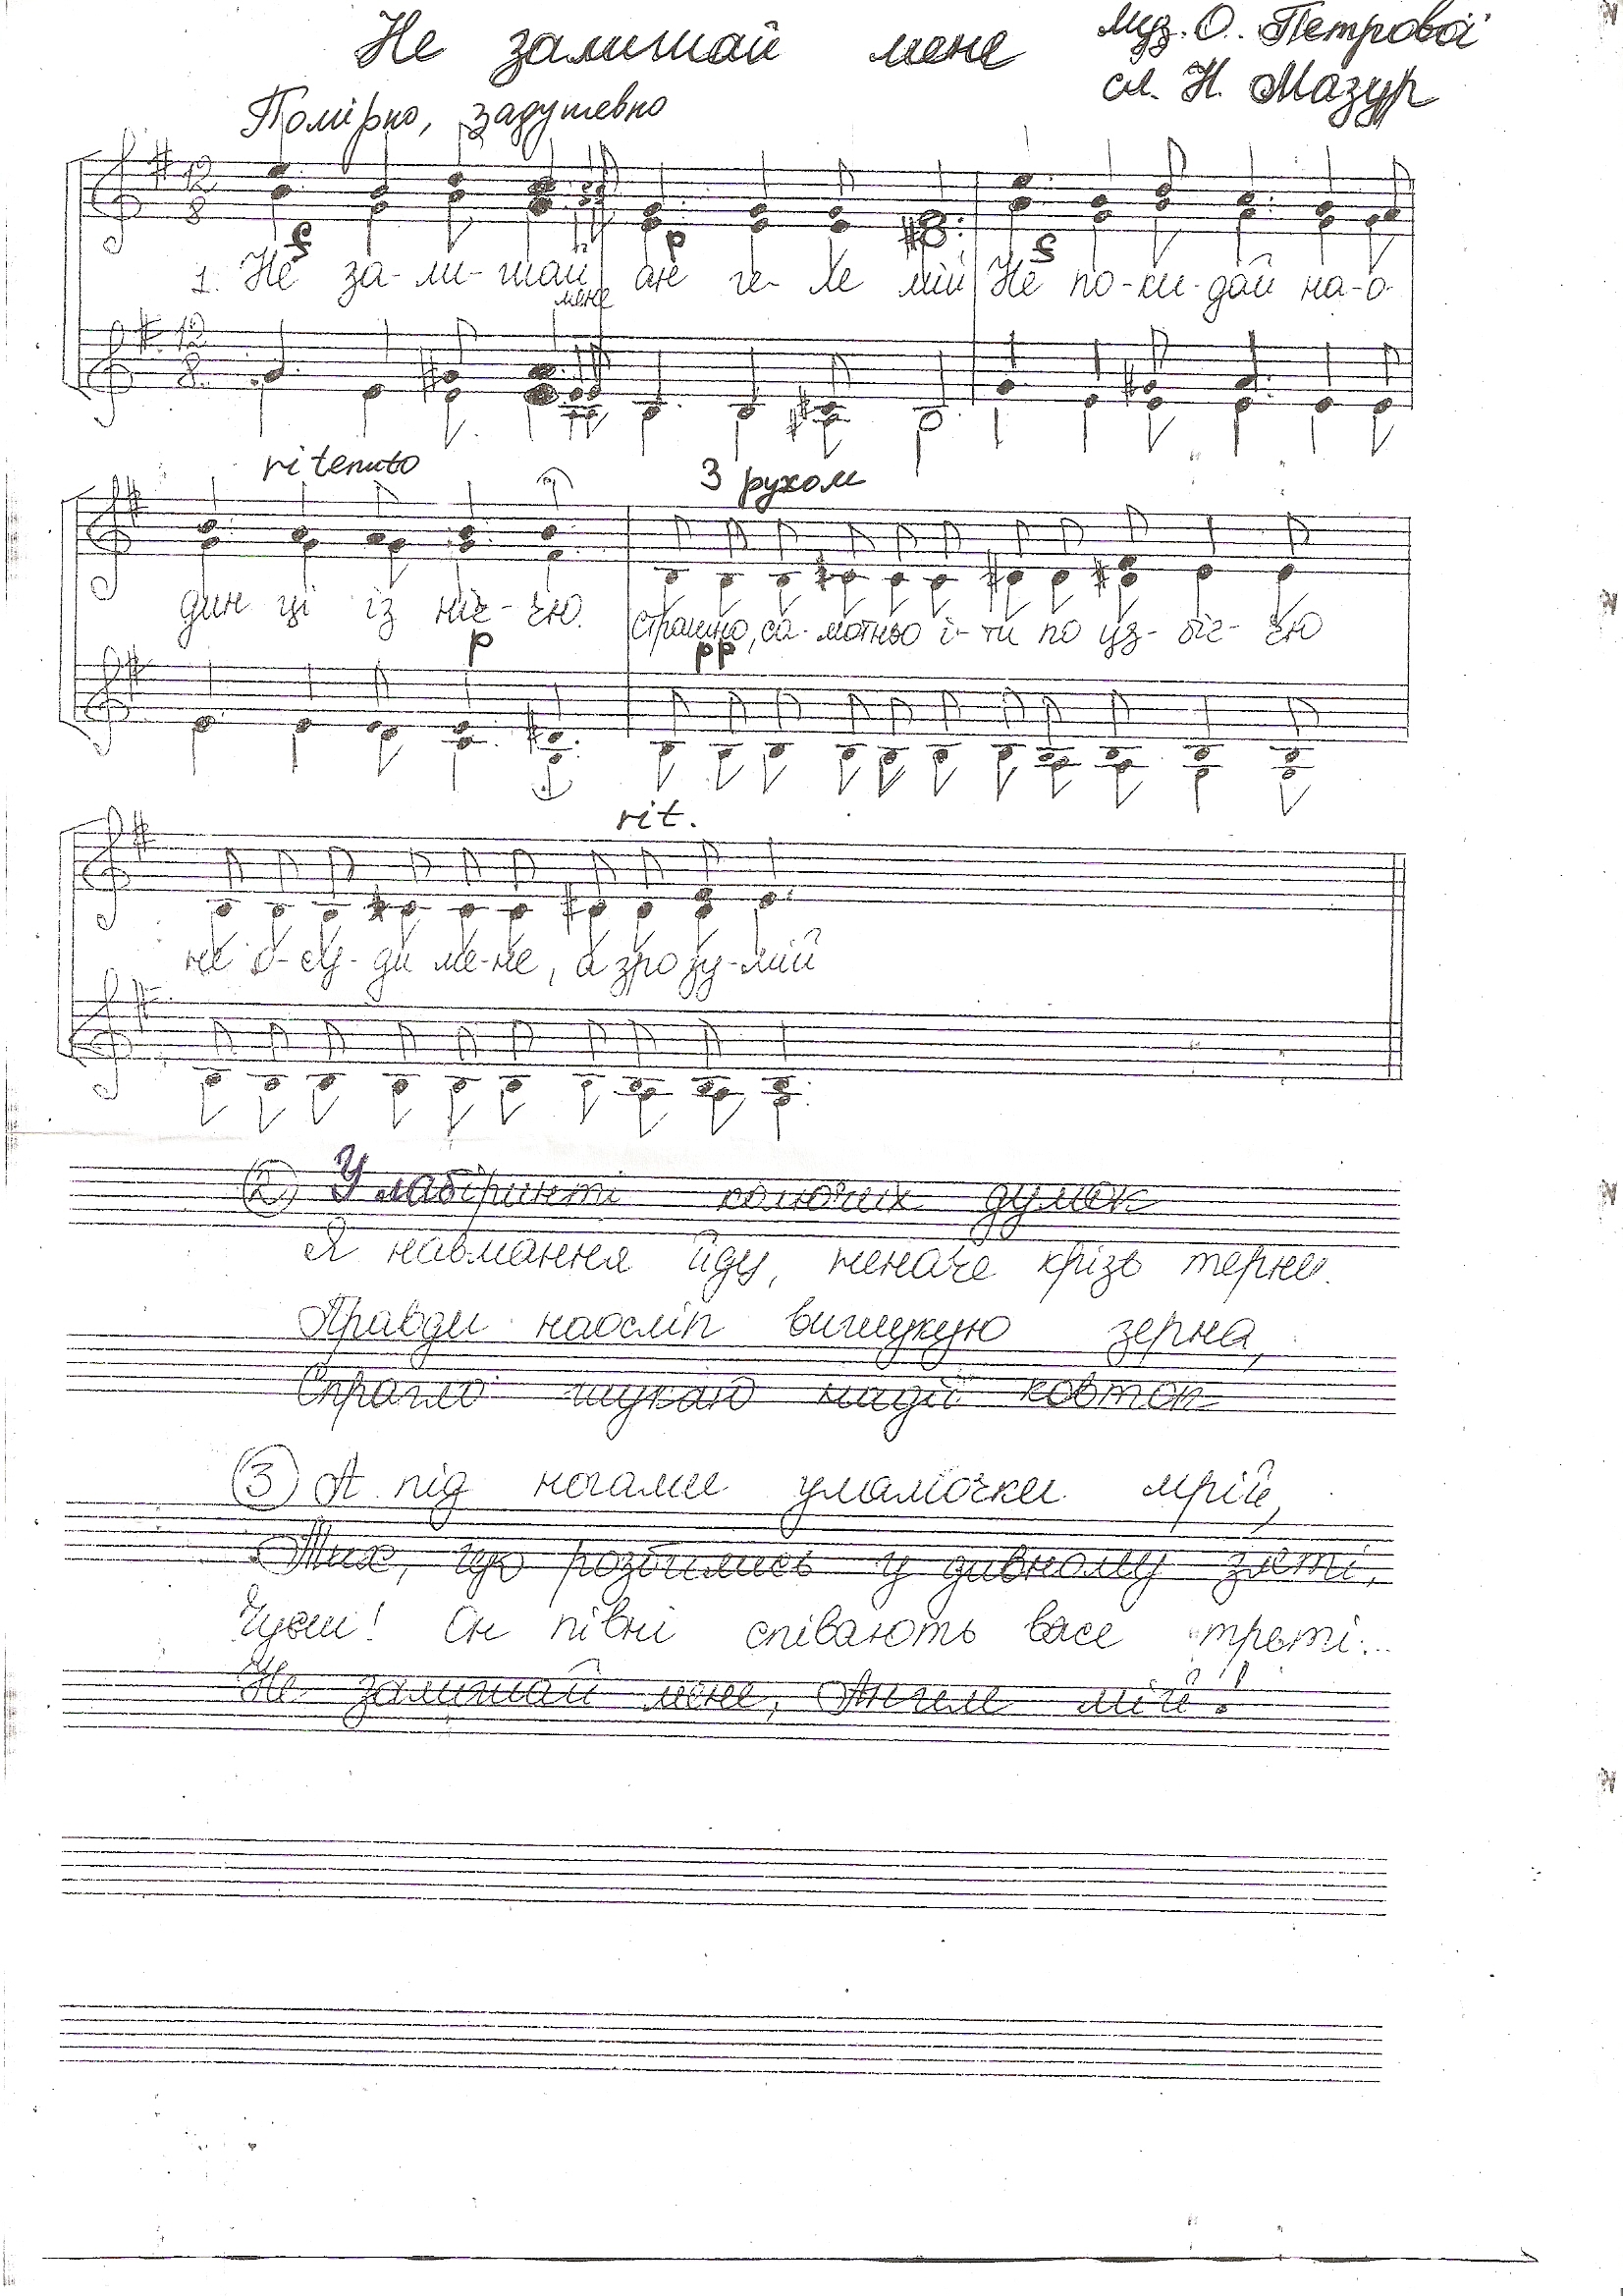 Не залишай мене
муз. О. Петрової
сл. Н. Мазур
Помірно, задушевно
12 8
f p f
1. Не за-ли-шай мене ан ге-ле мій Не по-ки-дай на-о-
12 8
ritenuto З рухом
дин ці із ніч-чю. страшно, са-мотньо і-ти по уз-біч-чю
p pp
rit.
не о-су-ди ме-не, а зро зу-мій
② У лабіринті колючих думок
Я навмання йду, неначе крізь терни.
Правди наосліп вишукую зерна,
Спрагло шукаю надії ковток
③ А під ногами уламочки мрій,
Тих, що розбились у дивному злеті,
Чуєш! Он півні співають вже треті...
Не залишай мене, Ангеле мій!